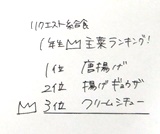 リクエスト給食
1年生 主菜ランキング!
1位 唐揚げ
2位 揚げギョウザ
3位 クリームシチュー